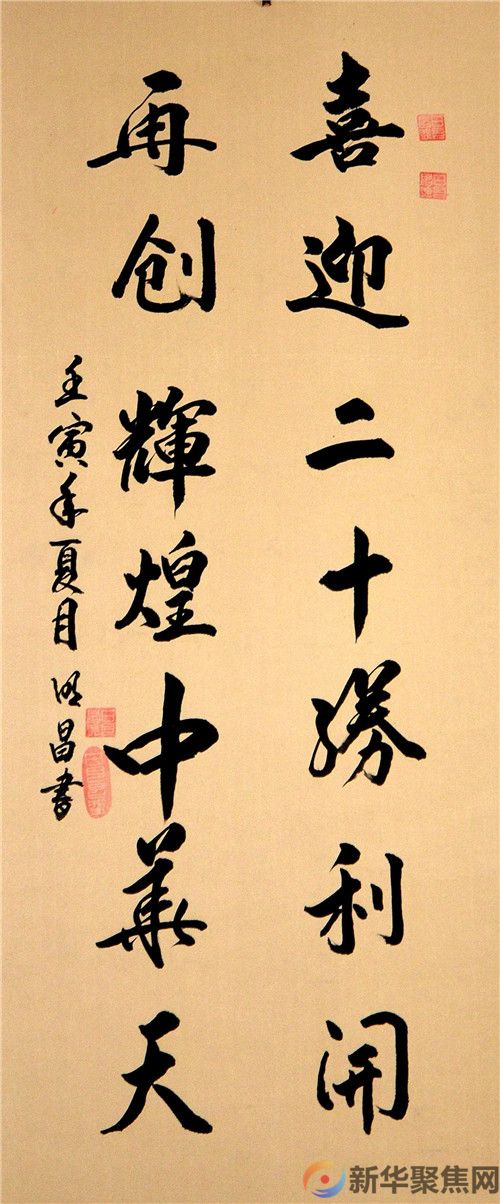 喜迎二十勝利开
再创輝煌中華天
壬寅年夏月明昌書
新华聚焦网